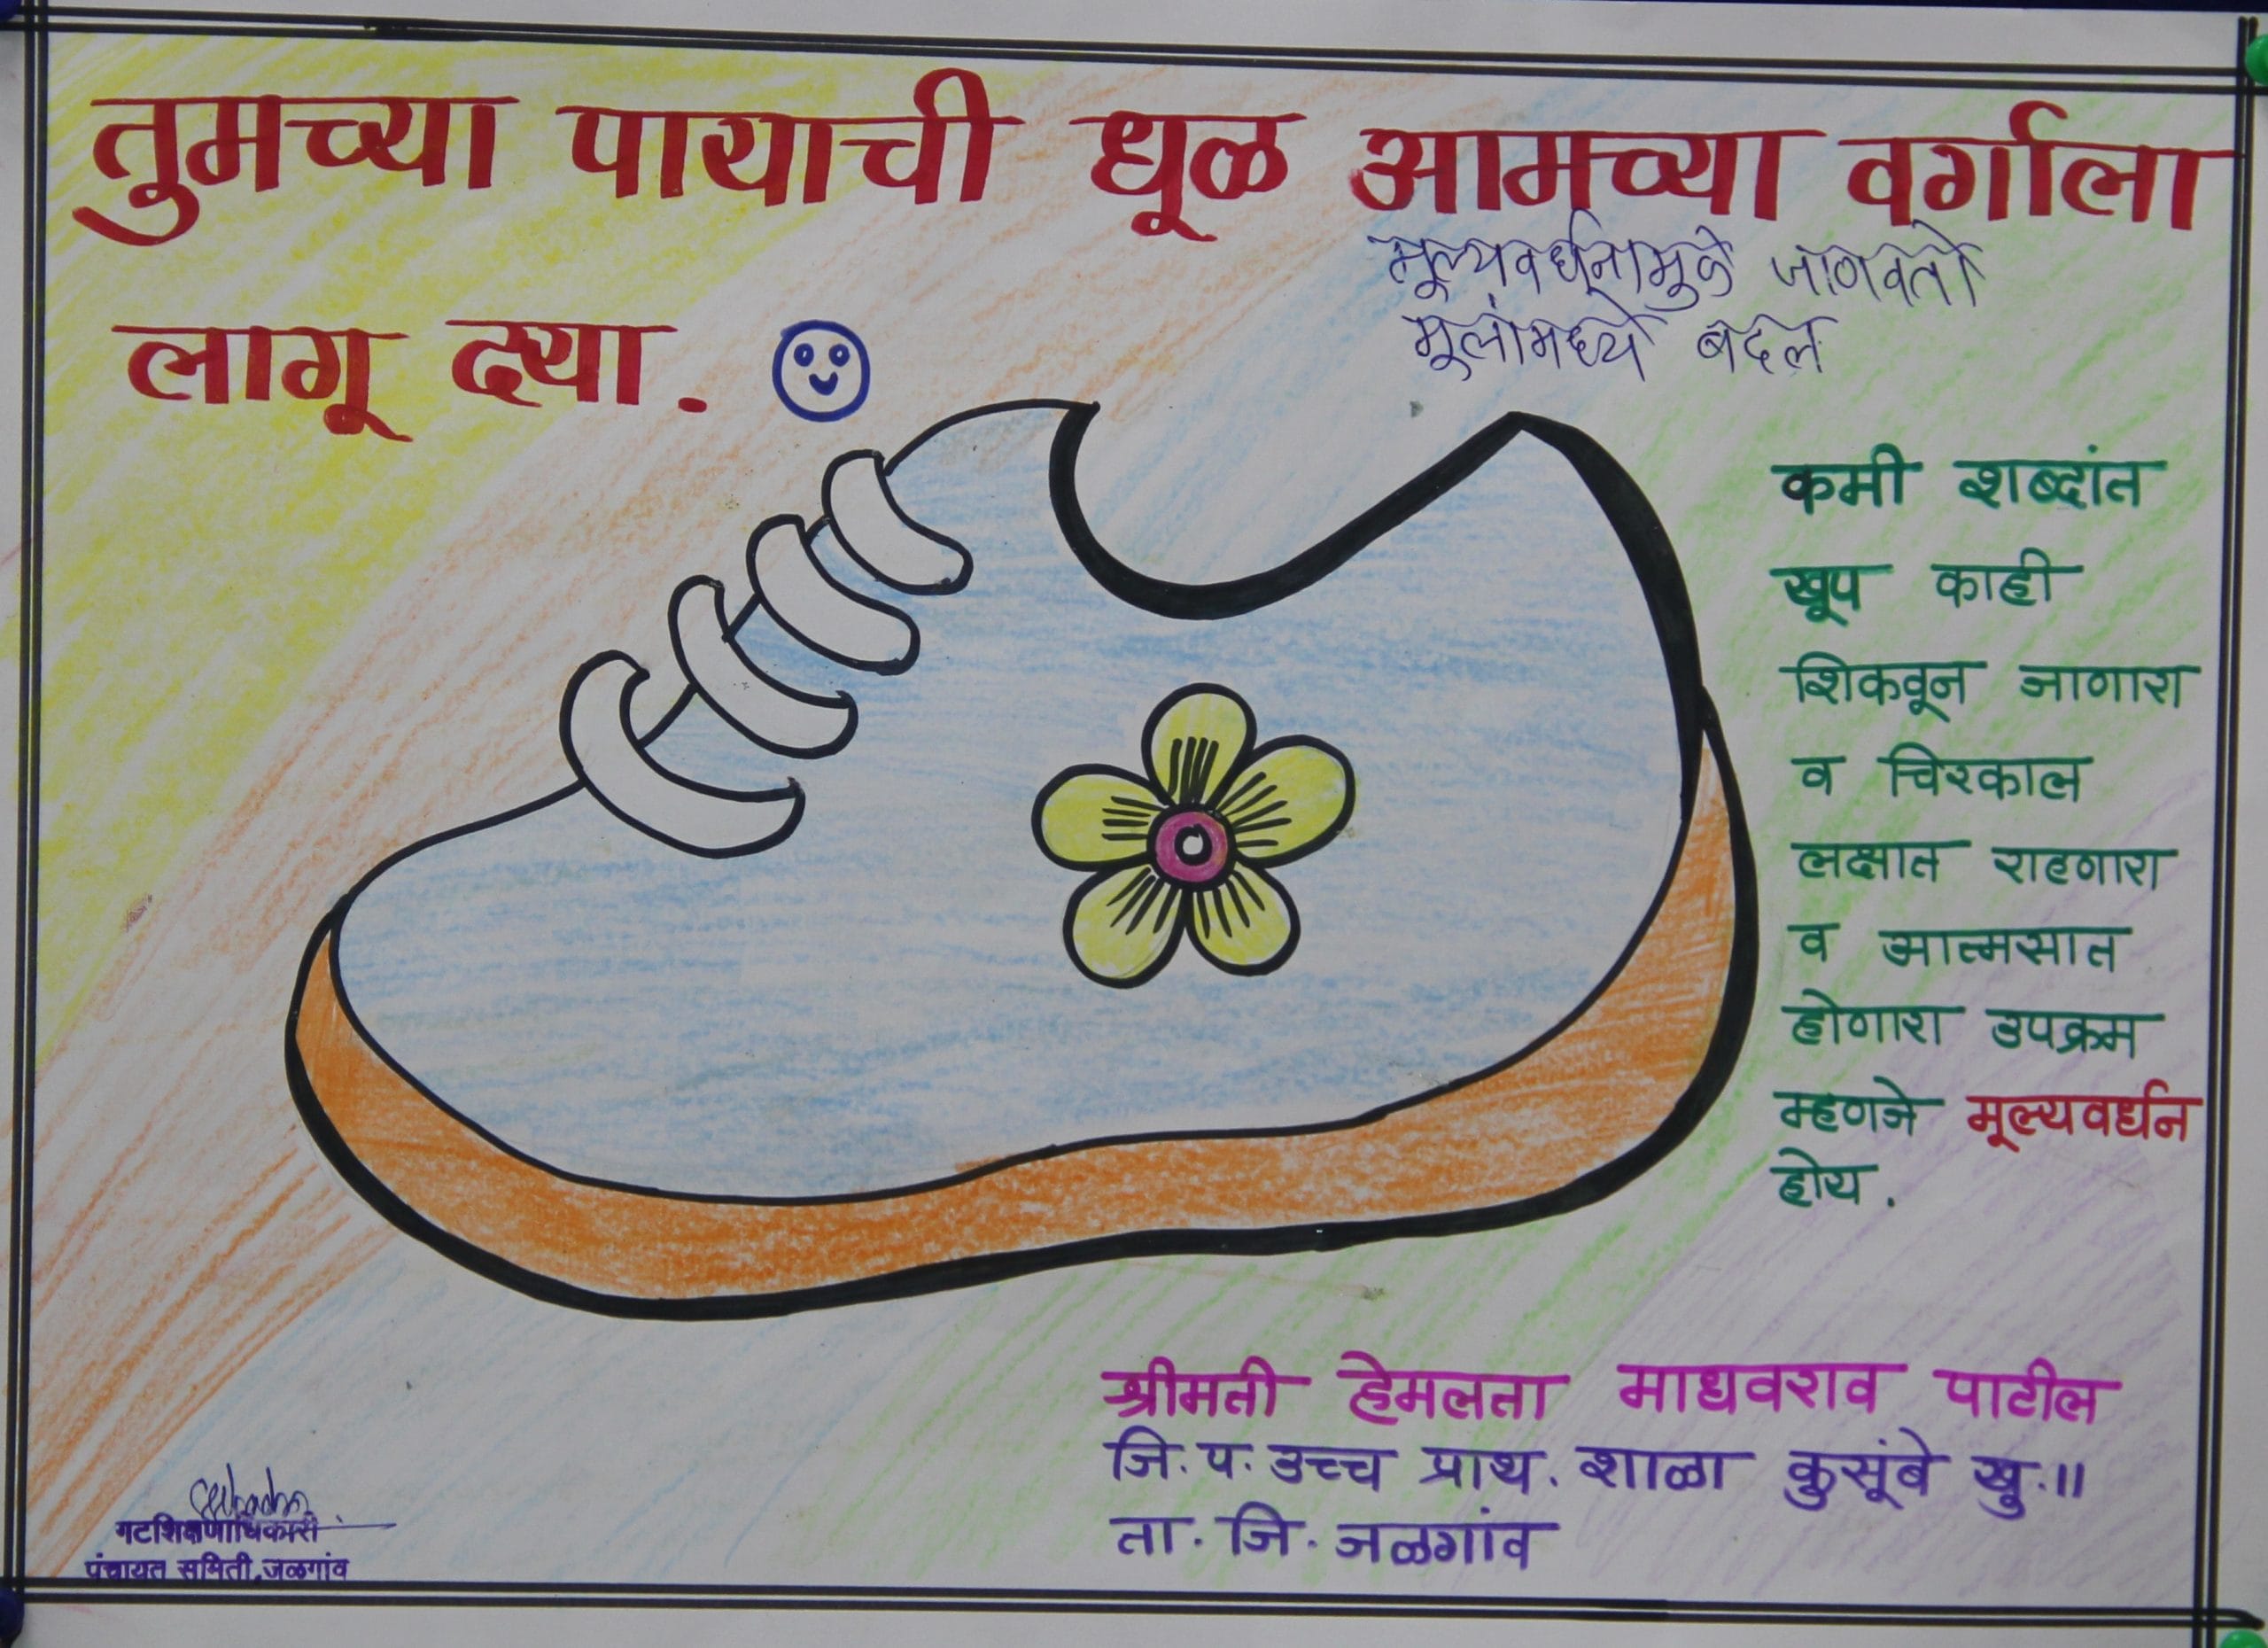 तुमच्या पायाची धूळ आमच्या वर्गाला
लागू द्या.
मूल्यवर्धनामुळे जाणवतो
मूलांमध्ये बदल
कमी शब्दांत
खूप काही
शिकवून जाणारा
व चिरकाल
लक्षात राहणारा
व आत्मसात
होणारा उपक्रम
म्हणजे मूल्यवर्धन
होय.
श्रीमती हेमलता माधवराव पाटील
जि. प. उच्च प्राथ. शाळा कुसूंबे खु.॥
ता. जि. जळगांव
गटशिक्षणाधिकारी
पंचायत समिती,जळगांव